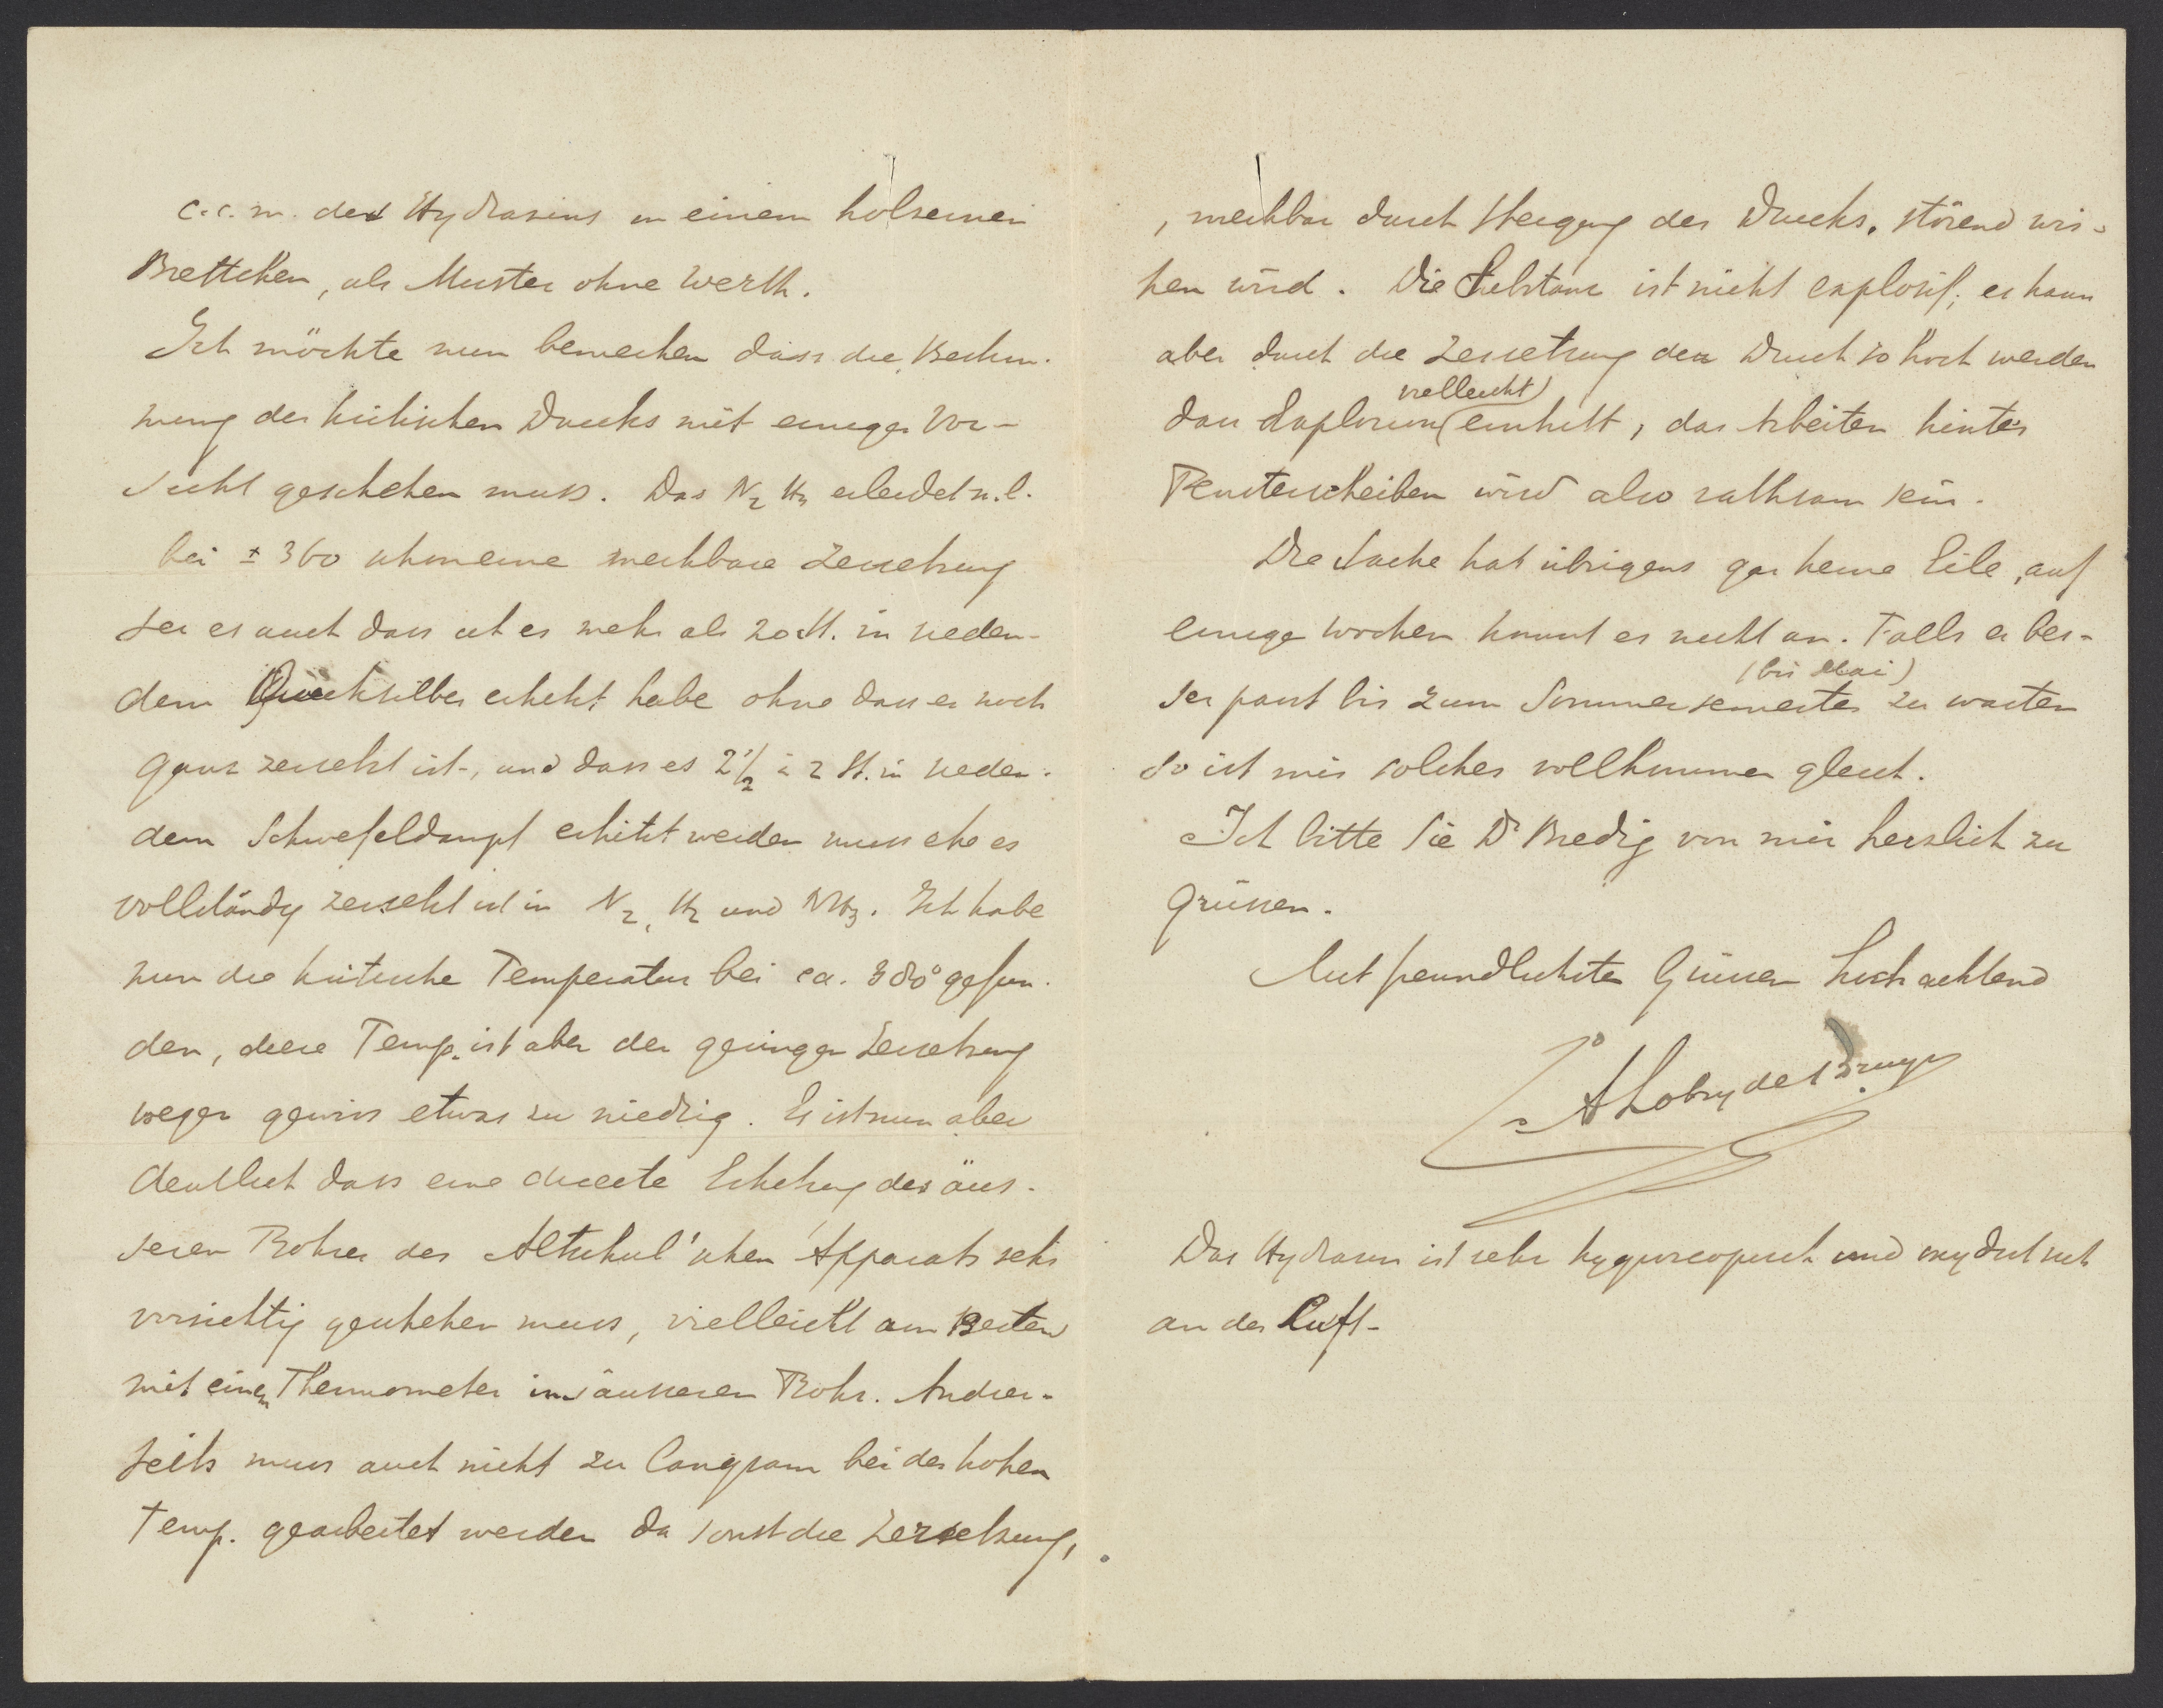 c.c.m. des Hydrazins in einem hölzernen
Brettchen, als Muster ohne Werth.
Ich möchte nun bemerken dass die Bestim-
mung des kritischen Drucks mit einiger Vor-
sicht geschehen muss. Das N2 H4 erleidet n.l.
bei ± 360 schon eine merkbare Zersetzung
sei es auch dass ich es mehr als 20 St. in sieden-
dem Quecksilber erhitzt habe ohne dass es noch
ganz zersetzt ist, und dass es 2 1/2 à 2 St. in sieden-
dem Schwefeldampf erhitzt werden muss ehe es
vollständig zersetzt ist in N2, H2 und NH3. Ich habe
nun die kritische Temperatur bei ca. 380° gefun-
den, diese Temp. ist aber der geringen Zersetzung
wegen gewiss etwas zu niedrig. Es ist nun aber
deutlich dass eine directe Erhitzung des äus-
seren Rohres des Altschul'schen Apparats sehr
vorsichtig geschehen muss, vielleicht am Besten
mit einem Thermometer im äusseren Rohr. Andrer-
seits muss auch nicht zu langsam bei der hohen
Temp. gearbeitet werden da sonst die Zersetzung,
, merkbar durch Steigung des Drucks, störend wir-
ken wird. Die Substanz ist nicht explosif; es kann
aber durch die Zersetzung der Druck so hoch werden
dass Explosion (vielleicht) eintritt, das Arbeiten hinter
Fensterscheiben wird also rathsam sein.
Die Sache hat übrigens gar keine Eile, auf
einige Wochen kommt es nicht an. Falls es bes-
ser passt bis zum Sommersemester (bis Mai) zu warten
so ist mir solches vollkommen gleich.
Ich bitte Sie Dr Bredig von mir herzlich zu
grüssen.
Mit freundlichsten Grüssen hochachtend
Lobry de Bruyn
Das Hydrazin ist sehr hygroscopisch und oxydirt sich
an der Luft-